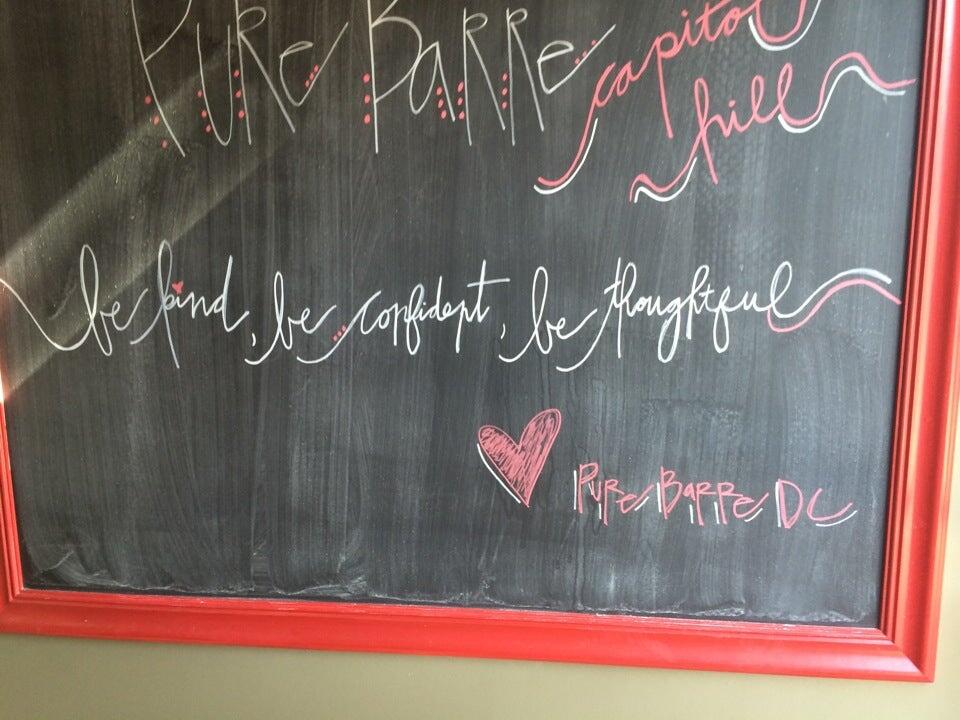 PURe BaRRe capitol
hill
be kind, be confident, be thoughtful
PURe BaRRe DC